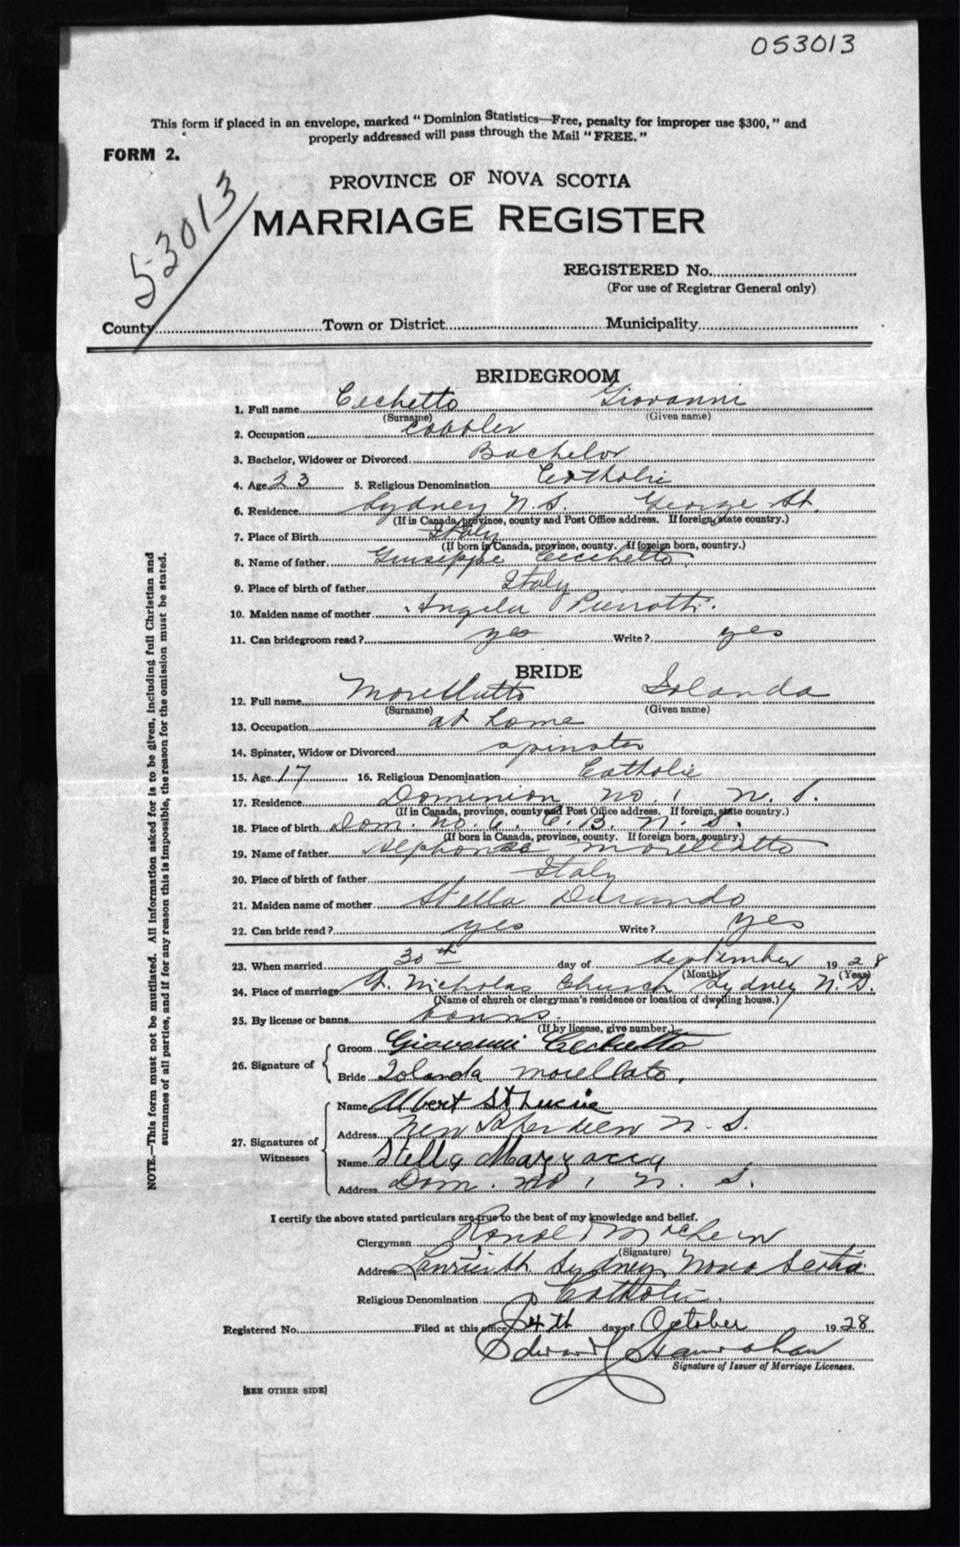 053013
This form if placed in an envelope, marked "Dominion Statistics—Free, penalty for improper use $300," and
properly addressed will pass through the Mail "FREE."
FORM 2.
53013
PROVINCE OF NOVA SCOTIA
MARRIAGE REGISTER
REGISTERED No.
(For use of Registrar General only)
County Town or District Municipality
BRIDEGROOM
1. Full name Cecchetto Giovanni
(Surname) (Given name)
2. Occupation cobbler
3. Bachelor, Widower or Divorced Bachelor
4. Age 23 5. Religious Denomination Catholic
6. Residence Sydney N.S. George St.
(If in Canada, province, county and Post Office address. If foreign, state country.)
7. Place of Birth Italy
(If born in Canada, province, county. If foreign born, country.)
8. Name of father Giuseppe Cecchetto
9. Place of birth of father Italy
10. Maiden name of mother Angela
11. Can bridegroom read? yes Write? yes
BRIDE
12. Full name Morellatto Iolanda
(Surname) (Given name)
13. Occupation at home
14. Spinster, Widow or Divorced spinster
15. Age 17 16. Religious Denomination Catholic
17. Residence Dominion No. 1 N. S.
(If in Canada, province, county and Post Office address. If foreign, state country.)
18. Place of birth Dom. No. 6, C. B. N. S.
(If born in Canada, province, county. If foreign born, country.)
19. Name of father Alphonse Morellatto
20. Place of birth of father Italy
21. Maiden name of mother Stella Durando
22. Can bride read? yes Write? yes
23. When married 30th day of September 1928
(Month) (Year)
24. Place of marriage St. Nicholas Church Sydney N.S.
(Name of church or clergyman's residence or location of dwelling house.)
25. By license or banns banns.
(If by license, give number.)
26. Signature of
Groom Giovanni Cecchetto
Bride Iolanda Morellato.
27. Signatures of Witnesses
Name Albert St Lucie
Address New Aberdeen N. S.
Name Stella Mazzocca
Address Dom. No 1 N. S.
I certify the above stated particulars are true to the best of my knowledge and belief.
Clergyman Ronald
(Signature)
Address Sydney, Nova Scotia
Religious Denomination Catholic.
Registered No. Filed at this office 4th day of October 1928
Edward
Signature of Issuer of Marriage Licenses.
[SEE OTHER SIDE]
NOTE.—This form must not be mutilated. All information asked for is to be given, including full Christian and
surnames of all parties, and if for any reason this is impossible, the reason for the omission must be stated.